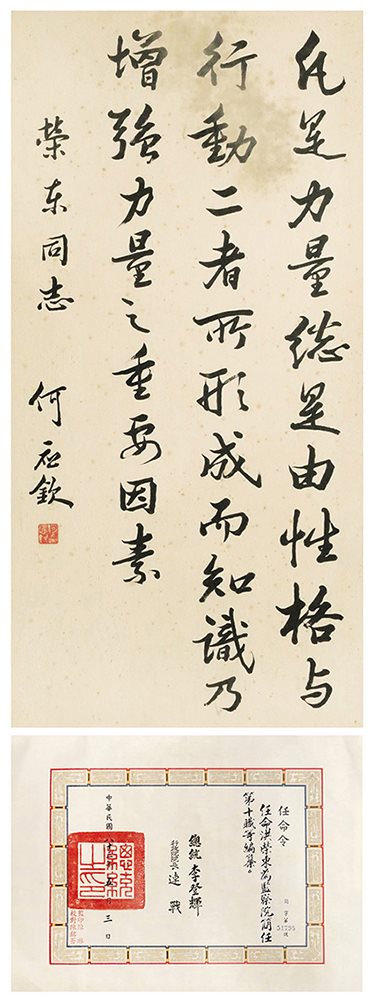 凡是力量総是由性格与
行動二者所形成而知識乃
增強力量之重要因素
榮东同志
何应欽
任命令
任命洪榮東為監察院簡任
第十職等編纂。
總統 李登輝
行政院院長 連戰
中華民國
三日
總統
之印
51795